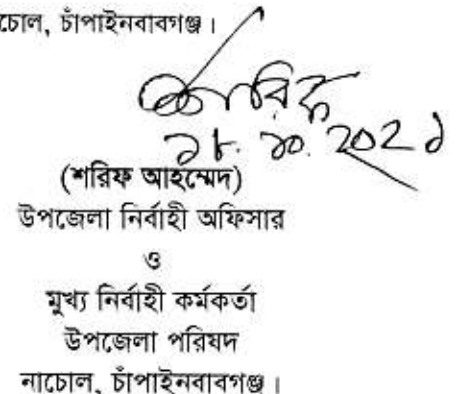 চোল, চাঁপাইনবাবগঞ্জ।
শরিফ
১৮.১০.২০২১
(শরিফ আহম্মেদ)
উপজেলা নির্বাহী অফিসার
ও
মুখ্য নির্বাহী কর্মকর্তা
উপজেলা পরিষদ
নাচোল, চাঁপাইনবাবগঞ্জ।